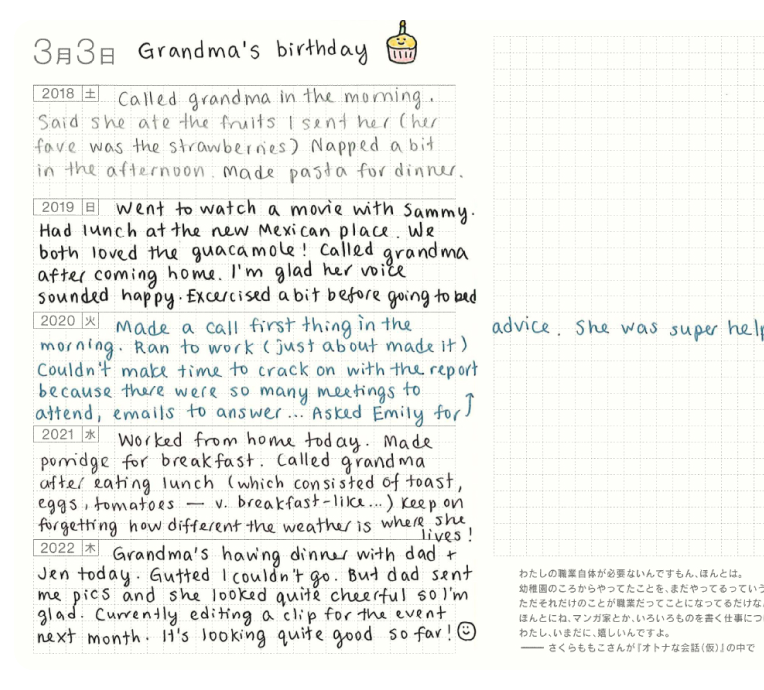 3月3日 Grandma's birthday
2018 土 Called grandma in the morning.
Said she ate the fruits I sent her (her
fave was the strawberries) Napped a bit
in the afternoon. Made pasta for dinner.
2019 日 Went to watch a movie with Sammy.
Had lunch at the new Mexican place. We
both loved the guacamole! Called grandma
after coming home. I'm glad her voice
sounded happy. Excercised a bit before going to bed
2020 火 Made a call first thing in the
morning. Ran to work (just about made it)
Couldn't make time to crack on with the report
because there were so many meetings to
attend, emails to answer... Asked Emily for
advice. She was super help
2021 水 Worked from home today. Made
porridge for breakfast. Called grandma
after eating lunch (which consisted of toast,
eggs, tomatoes — v. breakfast-like...) Keep on
forgetting how different the weather is where she
lives!
2022 木 Grandma's having dinner with dad +
Jen today. Gutted I couldn't go. But dad sent
me pics and she looked quite cheerful so I'm
glad. Currently editing a clip for the event
next month. It's looking quite good so far!
わたしの職業自体が必要ないんですもん、ほんとは。
幼稚園のころからやってたことを、まだやってるってい
ただそれだけのことが職業だってことになってるだけな
ほんとにね、マンガ家とか、いろいろものを書く仕事に
わたし、いまだに、嬉しいんですよ。
—— さくらももこさんが『オトナな会話(仮)』の中で